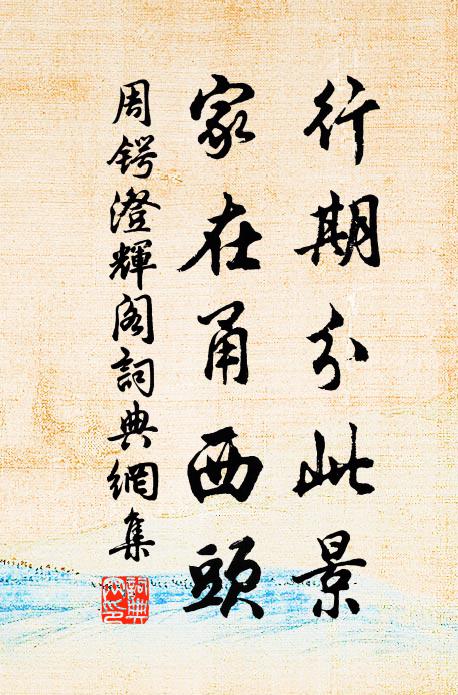 行期分此景
家在甬西頭
周锷澄輝閣詞典網集
詞典